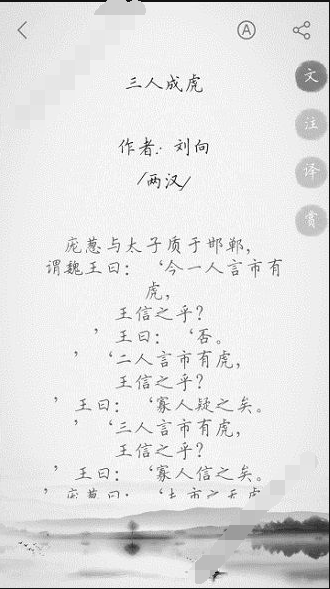 三人成虎
作者：刘向
/两汉/
庞葱与太子质于邯郸，
谓魏王曰：‘今一人言市有
虎，
王信之乎？
’王曰：‘否。
’‘二人言市有虎，
王信之乎？
’王曰：‘寡人疑之矣。
’‘三人言市有虎，
王信之乎？
’王曰：‘寡人信之矣。
’庞葱曰：‘夫市之无虎
A
文
注
译
赏